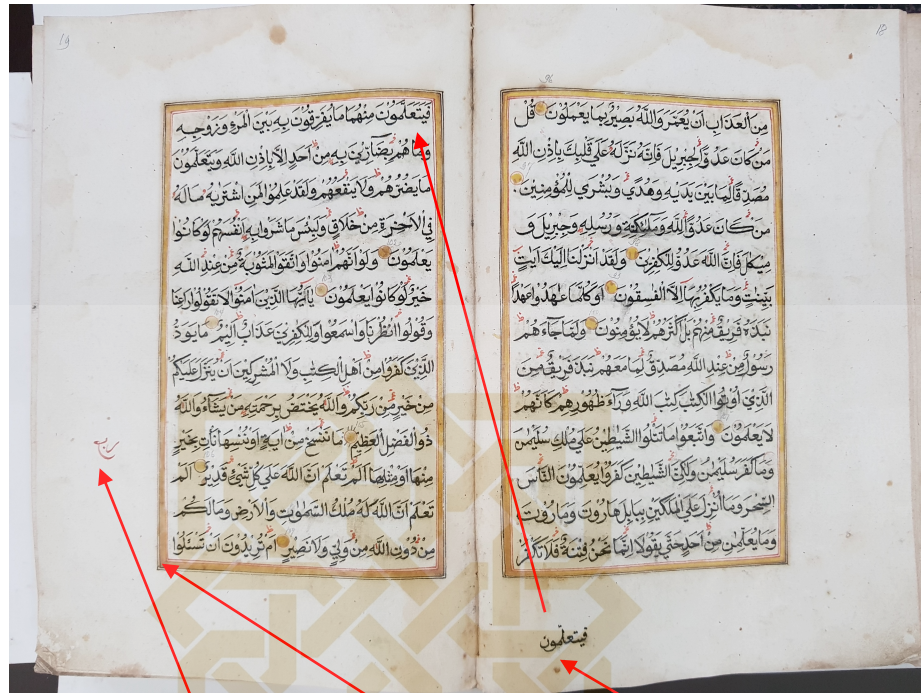 18
96
مِنَ الْعَذَابِ اَنْ يُعَمَّرَ وَاللّٰهُ بَصِيرٌ بِمَا يَعْمَلُونَ قُلْ
مَنْ كَانَ عَدُوًّا لِجِبْرِيلَ فَاِنَّهُ نَزَّلَهُ عَلٰي قَلْبِكَ بِاِذْنِ اللّٰهِ
مُصَدِّقًا لِمَا بَيْنَ يَدَيْهِ وَهُدًي وَبُشْرٰي لِلْمُؤْمِنِينَ
مَنْ كَانَ عَدُوًّا لِلّٰهِ وَمَلٰئِكَتِهِ وَرُسُلِهِ وَجِبْرِيلَ وَ
مِيكٰلَ فَاِنَّ اللّٰهَ عَدُوٌّ لِلْكٰفِرِينَ وَلَقَدْ اَنْزَلْنَا اِلَيْكَ اٰيٰتٍ
بَيِّنٰتٍ وَمَا يَكْفُرُ بِهَا اِلَّا الْفٰسِقُونَ اَوَكُلَّمَا عٰهَدُوا عَهْدًا
نَبَذَهُ فَرِيقٌ مِنْهُمْ بَلْ اَكْثَرُهُمْ لَا يُؤْمِنُونَ وَلَمَّا جَاءَهُمْ
رَسُولٌ مِنْ عِنْدِ اللّٰهِ مُصَدِّقٌ لِمَا مَعَهُمْ نَبَذَ فَرِيقٌ مِنَ
الَّذِينَ اُوتُوا الْكِتٰبَ كِتٰبَ اللّٰهِ وَرَاءَ ظُهُورِهِمْ كَاَنَّهُمْ
لَا يَعْلَمُونَ وَاتَّبَعُوا مَا تَتْلُوا الشَّيٰطِينُ عَلٰي مُلْكِ سُلَيْمٰنَ
وَمَا كَفَرَ سُلَيْمٰنُ وَلٰكِنَّ الشَّيٰطِينَ كَفَرُوا يُعَلِّمُونَ النَّاسَ
السِّحْرَ وَمَا اُنْزِلَ عَلَي الْمَلَكَيْنِ بِبَابِلَ هَارُوتَ وَمَارُوتَ
وَمَا يُعَلِّمٰنِ مِنْ اَحَدٍ حَتّٰي يَقُولَا اِنَّمَا نَحْنُ فِتْنَةٌ فَلَا تَكْفُرْ
فيتعلمون
19
فَيَتَعَلَّمُونَ مِنْهُمَا مَا يُفَرِّقُونَ بِهِ بَيْنَ الْمَرْءِ وَزَوْجِهِ
وَمَا هُمْ بِضَارِّينَ بِهِ مِنْ اَحَدٍ اِلَّا بِاِذْنِ اللّٰهِ وَيَتَعَلَّمُونَ
مَا يَضُرُّهُمْ وَلَا يَنْفَعُهُمْ وَلَقَدْ عَلِمُوا لَمَنِ اشْتَرٰيهُ مَا لَهُ
فِي الْاٰخِرَةِ مِنْ خَلَاقٍ وَلَبِئْسَ مَا شَرَوْا بِهِ اَنْفُسَهُمْ لَوْ كَانُوا
يَعْلَمُونَ وَلَوْ اَنَّهُمْ اٰمَنُوا وَاتَّقَوْا لَمَثُوبَةٌ مِنْ عِنْدِ اللّٰهِ
خَيْرٌ لَوْ كَانُوا يَعْلَمُونَ يَا اَيُّهَا الَّذِينَ اٰمَنُوا لَا تَقُولُوا رَاعِنَا
وَقُولُوا انْظُرْنَا وَاسْمَعُوا وَلِلْكٰفِرِينَ عَذَابٌ اَلِيمٌ مَا يَوَدُّ
الَّذِينَ كَفَرُوا مِنْ اَهْلِ الْكِتٰبِ وَلَا الْمُشْرِكِينَ اَنْ يُنَزَّلَ عَلَيْكُمْ
مِنْ خَيْرٍ مِنْ رَبِّكُمْ وَاللّٰهُ يَخْتَصُّ بِرَحْمَتِهِ مَنْ يَشَاءُ وَاللّٰهُ
ذُو الْفَضْلِ الْعَظِيمِ مَا نَنْسَخْ مِنْ اٰيَةٍ اَوْ نُنْسِهَا نَأْتِ بِخَيْرٍ
مِنْهَا اَوْ مِثْلِهَا اَلَمْ تَعْلَمْ اَنَّ اللّٰهَ عَلٰي كُلِّ شَيْءٍ قَدِيرٌ اَلَمْ
تَعْلَمْ اَنَّ اللّٰهَ لَهُ مُلْكُ السَّمٰوٰتِ وَالْاَرْضِ وَمَا لَكُمْ
مِنْ دُونِ اللّٰهِ مِنْ وَلِيٍّ وَلَا نَصِيرٍ اَمْ تُرِيدُونَ اَنْ تَسْئَلُوا